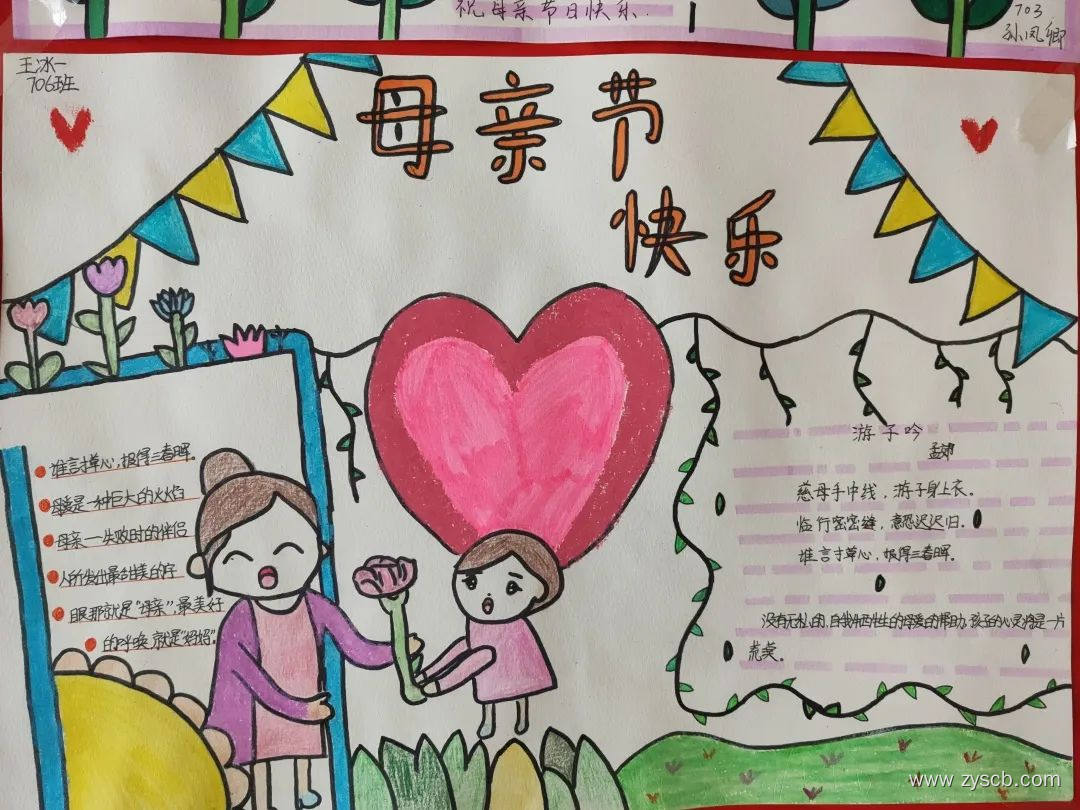 祝母亲节日快乐
703
孙凤卿
王冰一
706班
母亲节
快乐
谁言寸草心，报得三春晖。
母爱是一种巨大的火焰
母亲一失败时的伴侣
人所发出最甜美的字
眼那就是“母亲”，最美好
的呼唤就是“妈妈”。
游子吟
孟郊
慈母手中线，游子身上衣。
临行密密缝，意恐迟迟归。
谁言寸草心，报得三春晖。
没有无私的，自我牺牲的母爱的帮助，孩子的心灵将是一片
荒漠。
www.zyscb.com